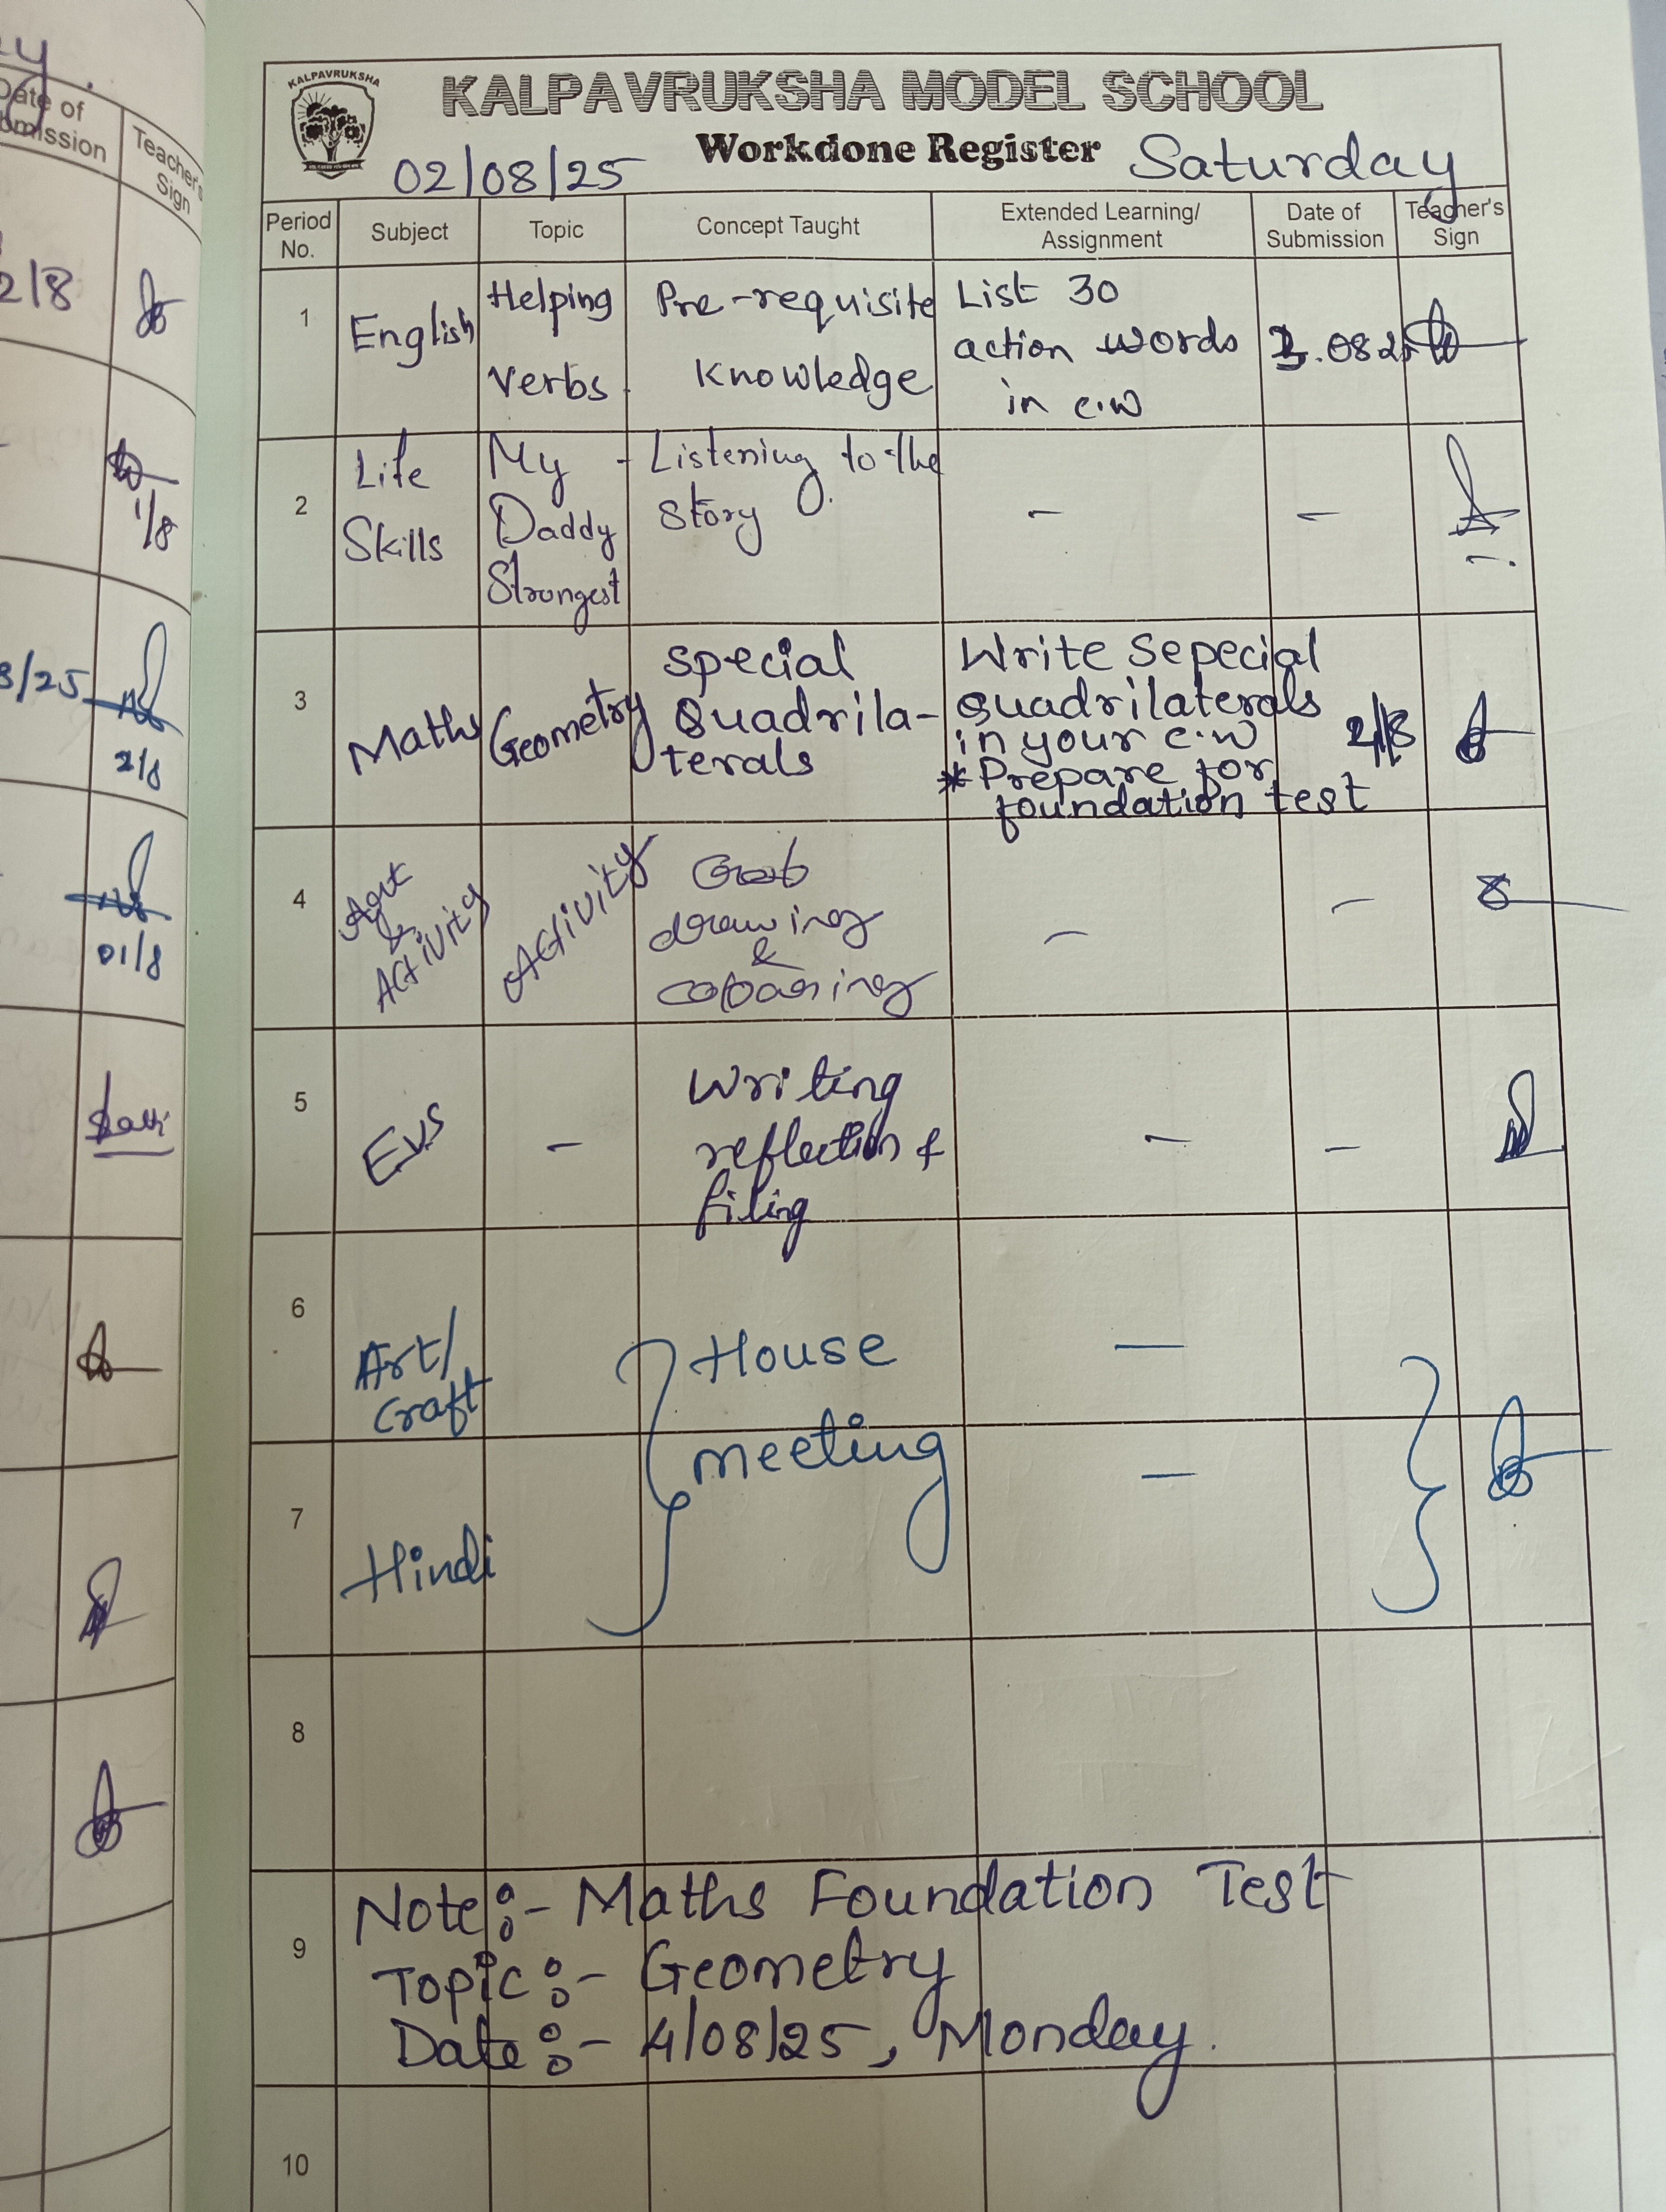 KALPAVRUKSHA
KALPAVRUKSHA MODEL SCHOOL
Workdone Register
02/08/25 Saturday
Period No. Subject Topic Concept Taught Extended Learning/ Assignment Date of Submission Teacher's Sign
1 English Helping Verbs. Pre-requisite Knowledge List 30 action words in c.w
2 Life Skills My Daddy Strongest - Listening to the Story. - -
3 Maths Geometry special Quadrila-terals Write Sepecial quadrilaterals in your c.w 2/8
* Prepare for foundation test
4 Art & Activity Activity drawing & - -
5 Evs - Writing reflection & filing - -
6 Art/ Craft House —
7 Hindi meeting —
8
9 Note:- Maths Foundation Test
Topic:- Geometry
Date:- 4/08/25, Monday.
10
Date of
Teacher's Sign
2/8
1/8
2/8
01/8